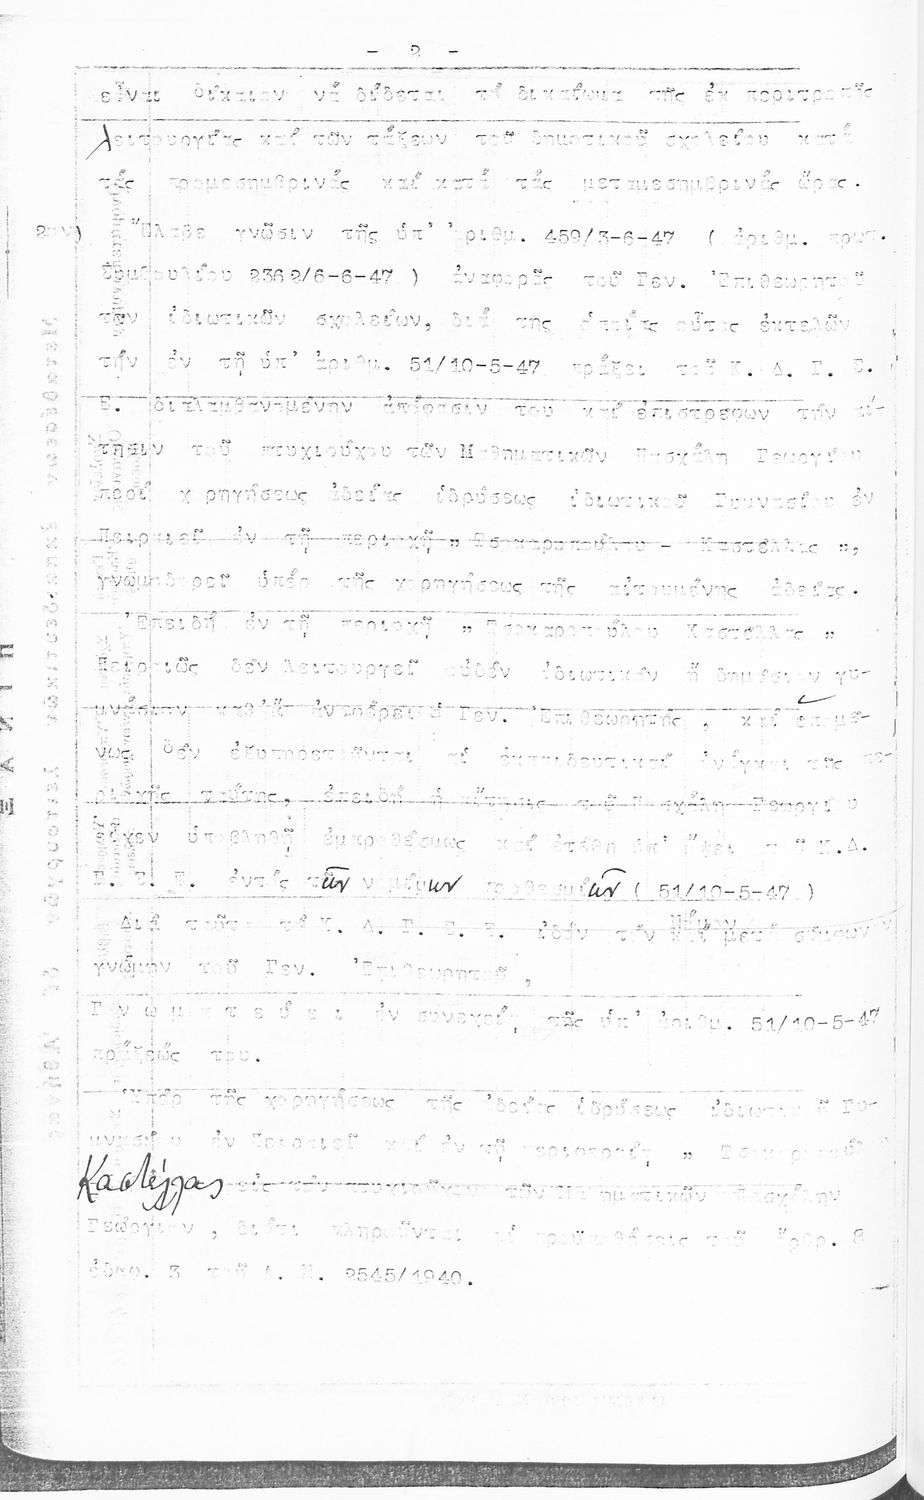 - 2 -
εἶναι δίκαιον νά δίδεται τό δικαίωμα τῆς ἐκ περιτροπῆς
λειτουργίας καί τῶν τάξεων τοῦ δημοτικοῦ σχολείου κατά
τάς προμεσημβρινάς καί κατά τάς μεταμεσημβρινάς ὥρας.
2ον) Ἔλαβε γνῶσιν τῆς ὑπ' ἀριθμ. 459/3-6-47 ( ἀριθμ. πρωτ.
Συμβουλίου 2362/6-6-47 ) ἀναφορᾶς τοῦ Γεν. Ἐπιθεωρητοῦ
τῶν ἰδιωτικῶν σχολείων, διά της ὁποίας οὗτος ἐκτελῶν
τήν ἐν τῇ ὑπ' ἀριθμ. 51/10-5-47 πράξει τοῦ Κ. Δ. Γ. Σ.
Ε. διαλαμβανομένην ἀπόφασιν του καί ἐπιστρεφων τήν αἴ-
τησιν τοῦ πτυχιούχου τῶν Μαθηματικῶν Πασχάλη Γεωργίου
περί χορηγήσεως ἀδείας ἱδρύσεως ἰδιωτικοῦ Γυμνασίου ἐν
Πειραιεῖ ἐν τῇ περιοχῇ " Τσοκαροπούλου - Καστέλλας ",
γνωμοδοτεῖ ὑπέρ τῆς χορηγήσεως τῆς αἰτουμένης ἀδείας.
Ἐπειδή ἐν τῇ περιοχῇ " Τσοκαροπούλου Καστέλλας "
Πειραιῶς δέν λειτουργεῖ οὐδέν ἰδιωτικόν ἤ δημόσιον γυ-
μνάσιον καθ' ἅ ἀναφέρει ὁ Γεν. Ἐπιθεωρητής , καί ἑπομέ-
νως δέν ἐξυπηρετοῦνται αἱ ἐκπαιδευτικαί ἀνάγκαι τῆς πε-
ριοχῆς ταύτης, ἐπειδή ἡ αἴτησις τοῦ Πασχάλη Γεωργίου
εἶχεν ὑποβληθῆ ἐμπροθέσμως καί ἐτέθη ὑπ' ὄψει τοῦ Κ.Δ.
Γ. Σ. Ε. ἐντός τῶν νομίμων προθεσμιῶν ( 51/10-5-47 )
Διά ταῦτα τό Κ. Δ. Γ. Σ. Ε. ἰδόν τόν Νόμον καί μετά σύμφωνον
γνώμην τοῦ Γεν. Ἐπιθεωρητοῦ ,
Γ ν ω μ α τ ε ύ ε ι ἐν συνεχείᾳ τῆς ὑπ' ἀριθμ. 51/10-5-47
πράξεώς του.
Ὑπέρ τῆς χορηγήσεως τῆς ἀδείας ἱδρύσεως ἰδιωτικοῦ Γυ-
μνασίου ἐν Πειραιεῖ καί ἐν τῇ περιφερείᾳ " Τσοκαροπούλου
Καστέλλας εἰς τόν πτυχιοῦχον τῶν Μαθηματικῶν Πασχάλην
Γεώργιον , διότι πληροῦνται αἱ προϋποθέσεις τοῦ ἄρθρ. 8
ἐδαφ. 3 τοῦ Α. Ν. 2545/1940.